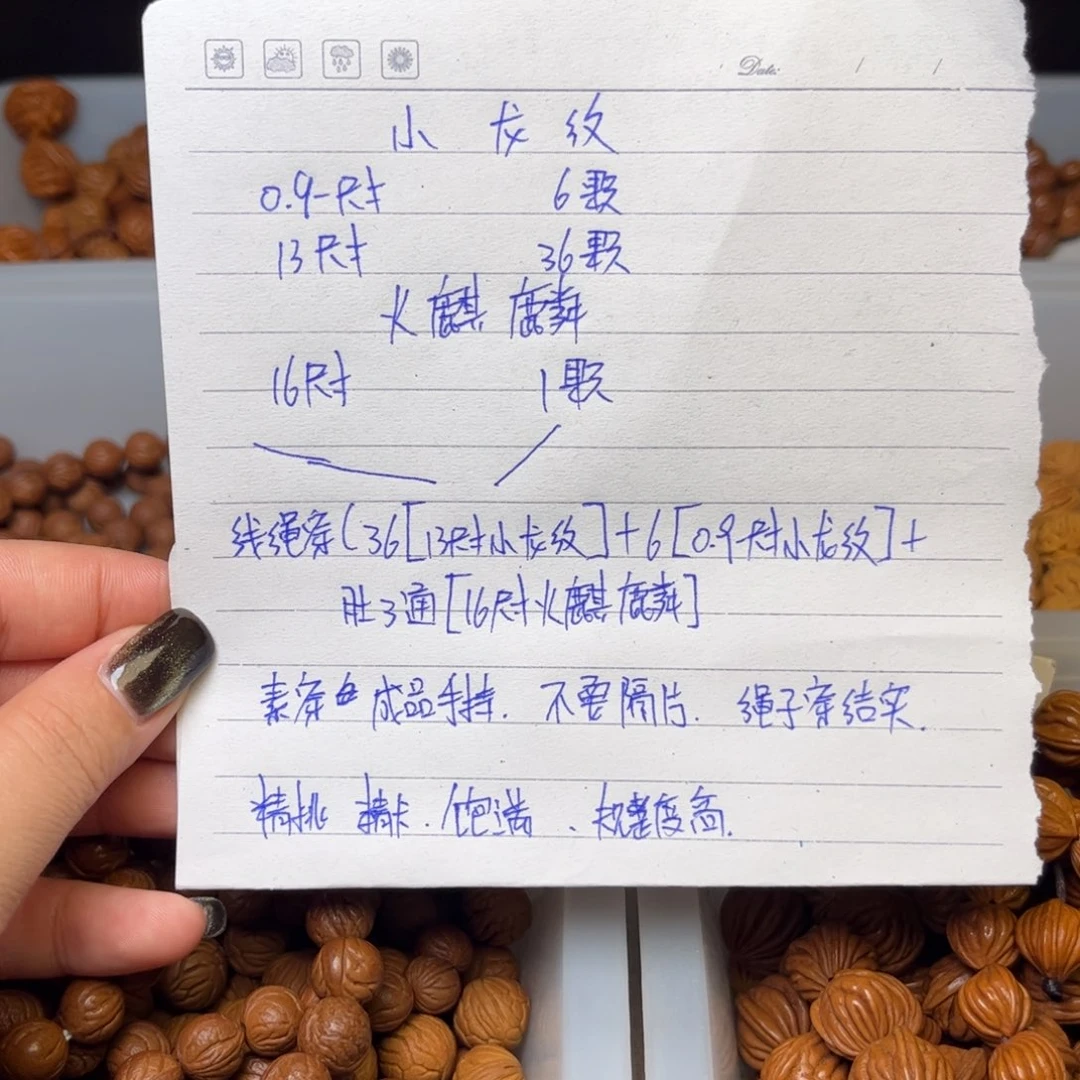 Date: / /
小龙纹
0.9尺寸 6颗
13尺寸 36颗
火麒麟
16尺寸 1颗
线绳穿(36[13尺寸小龙纹]+6[0.9尺寸小龙纹]+
肚3通[16尺寸火麒麟]
素穿 成品手持. 不要隔片. 绳子穿结实.
精挑 精卡. 饱满、规整度高.